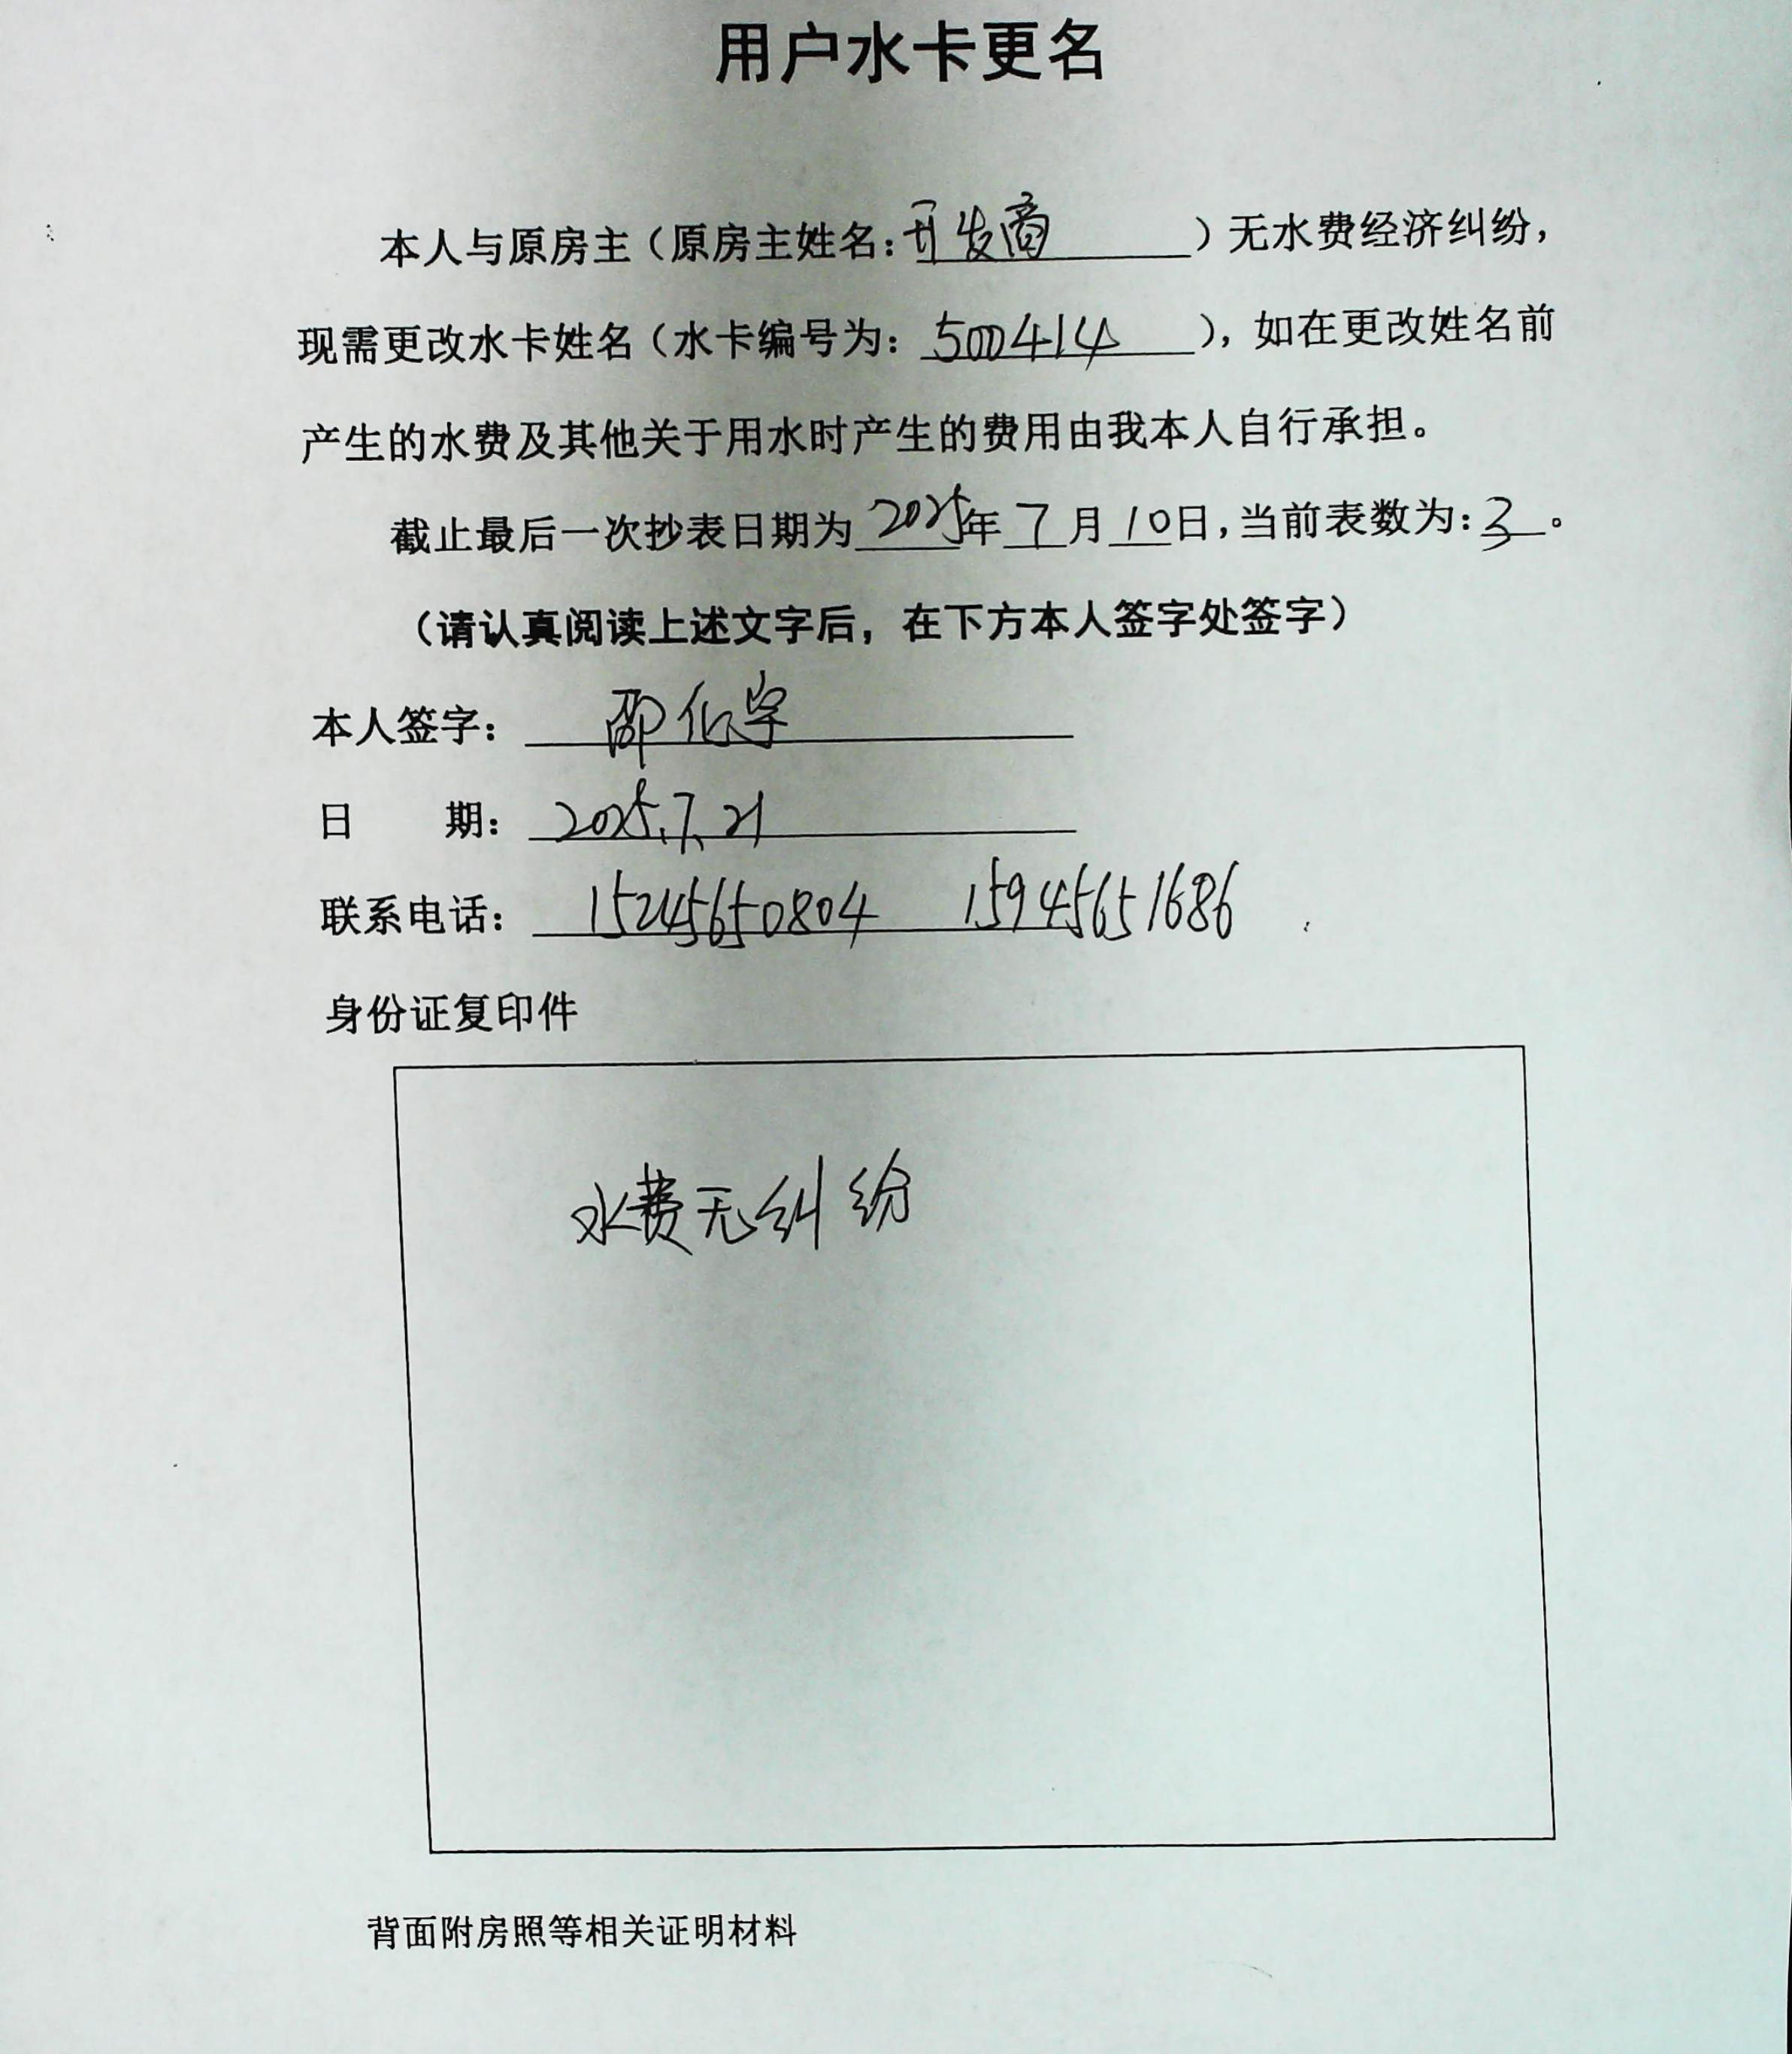 用户水卡更名
本人与原房主（原房主姓名：开发商）无水费经济纠纷，
现需更改水卡姓名（水卡编号为：500414），如在更改姓名前
产生的水费及其他关于用水时产生的费用由我本人自行承担。
截止最后一次抄表日期为2025年7月10日，当前表数为：3。
（请认真阅读上述文字后，在下方本人签字处签字）
本人签字：邵
日期：2025.7.21
联系电话：15245650804 15945651686
身份证复印件
水费无纠纷
背面附房照等相关证明材料